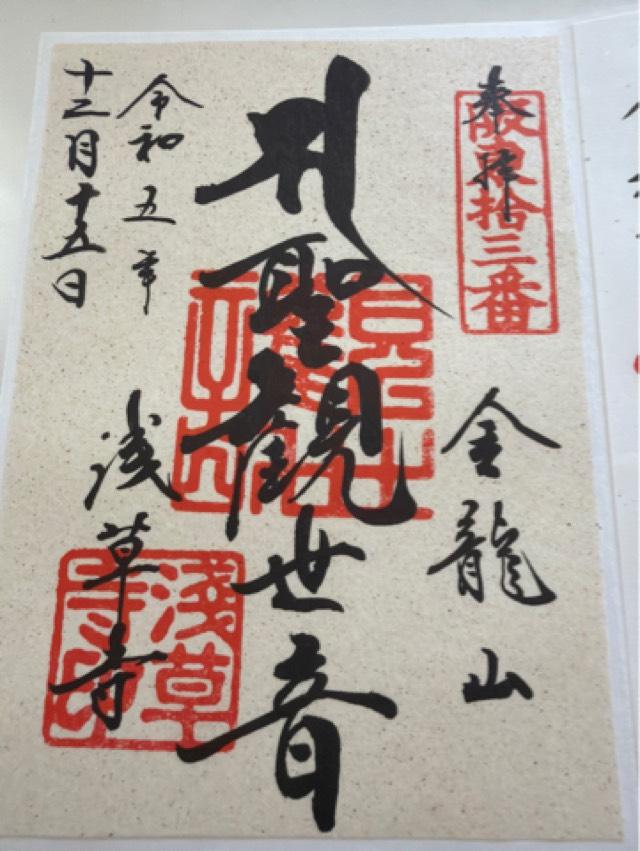 奉拝
阪東拾三番
金龍山
聖観世音
令和五年
十二月十五日
浅草寺
淺草寺印